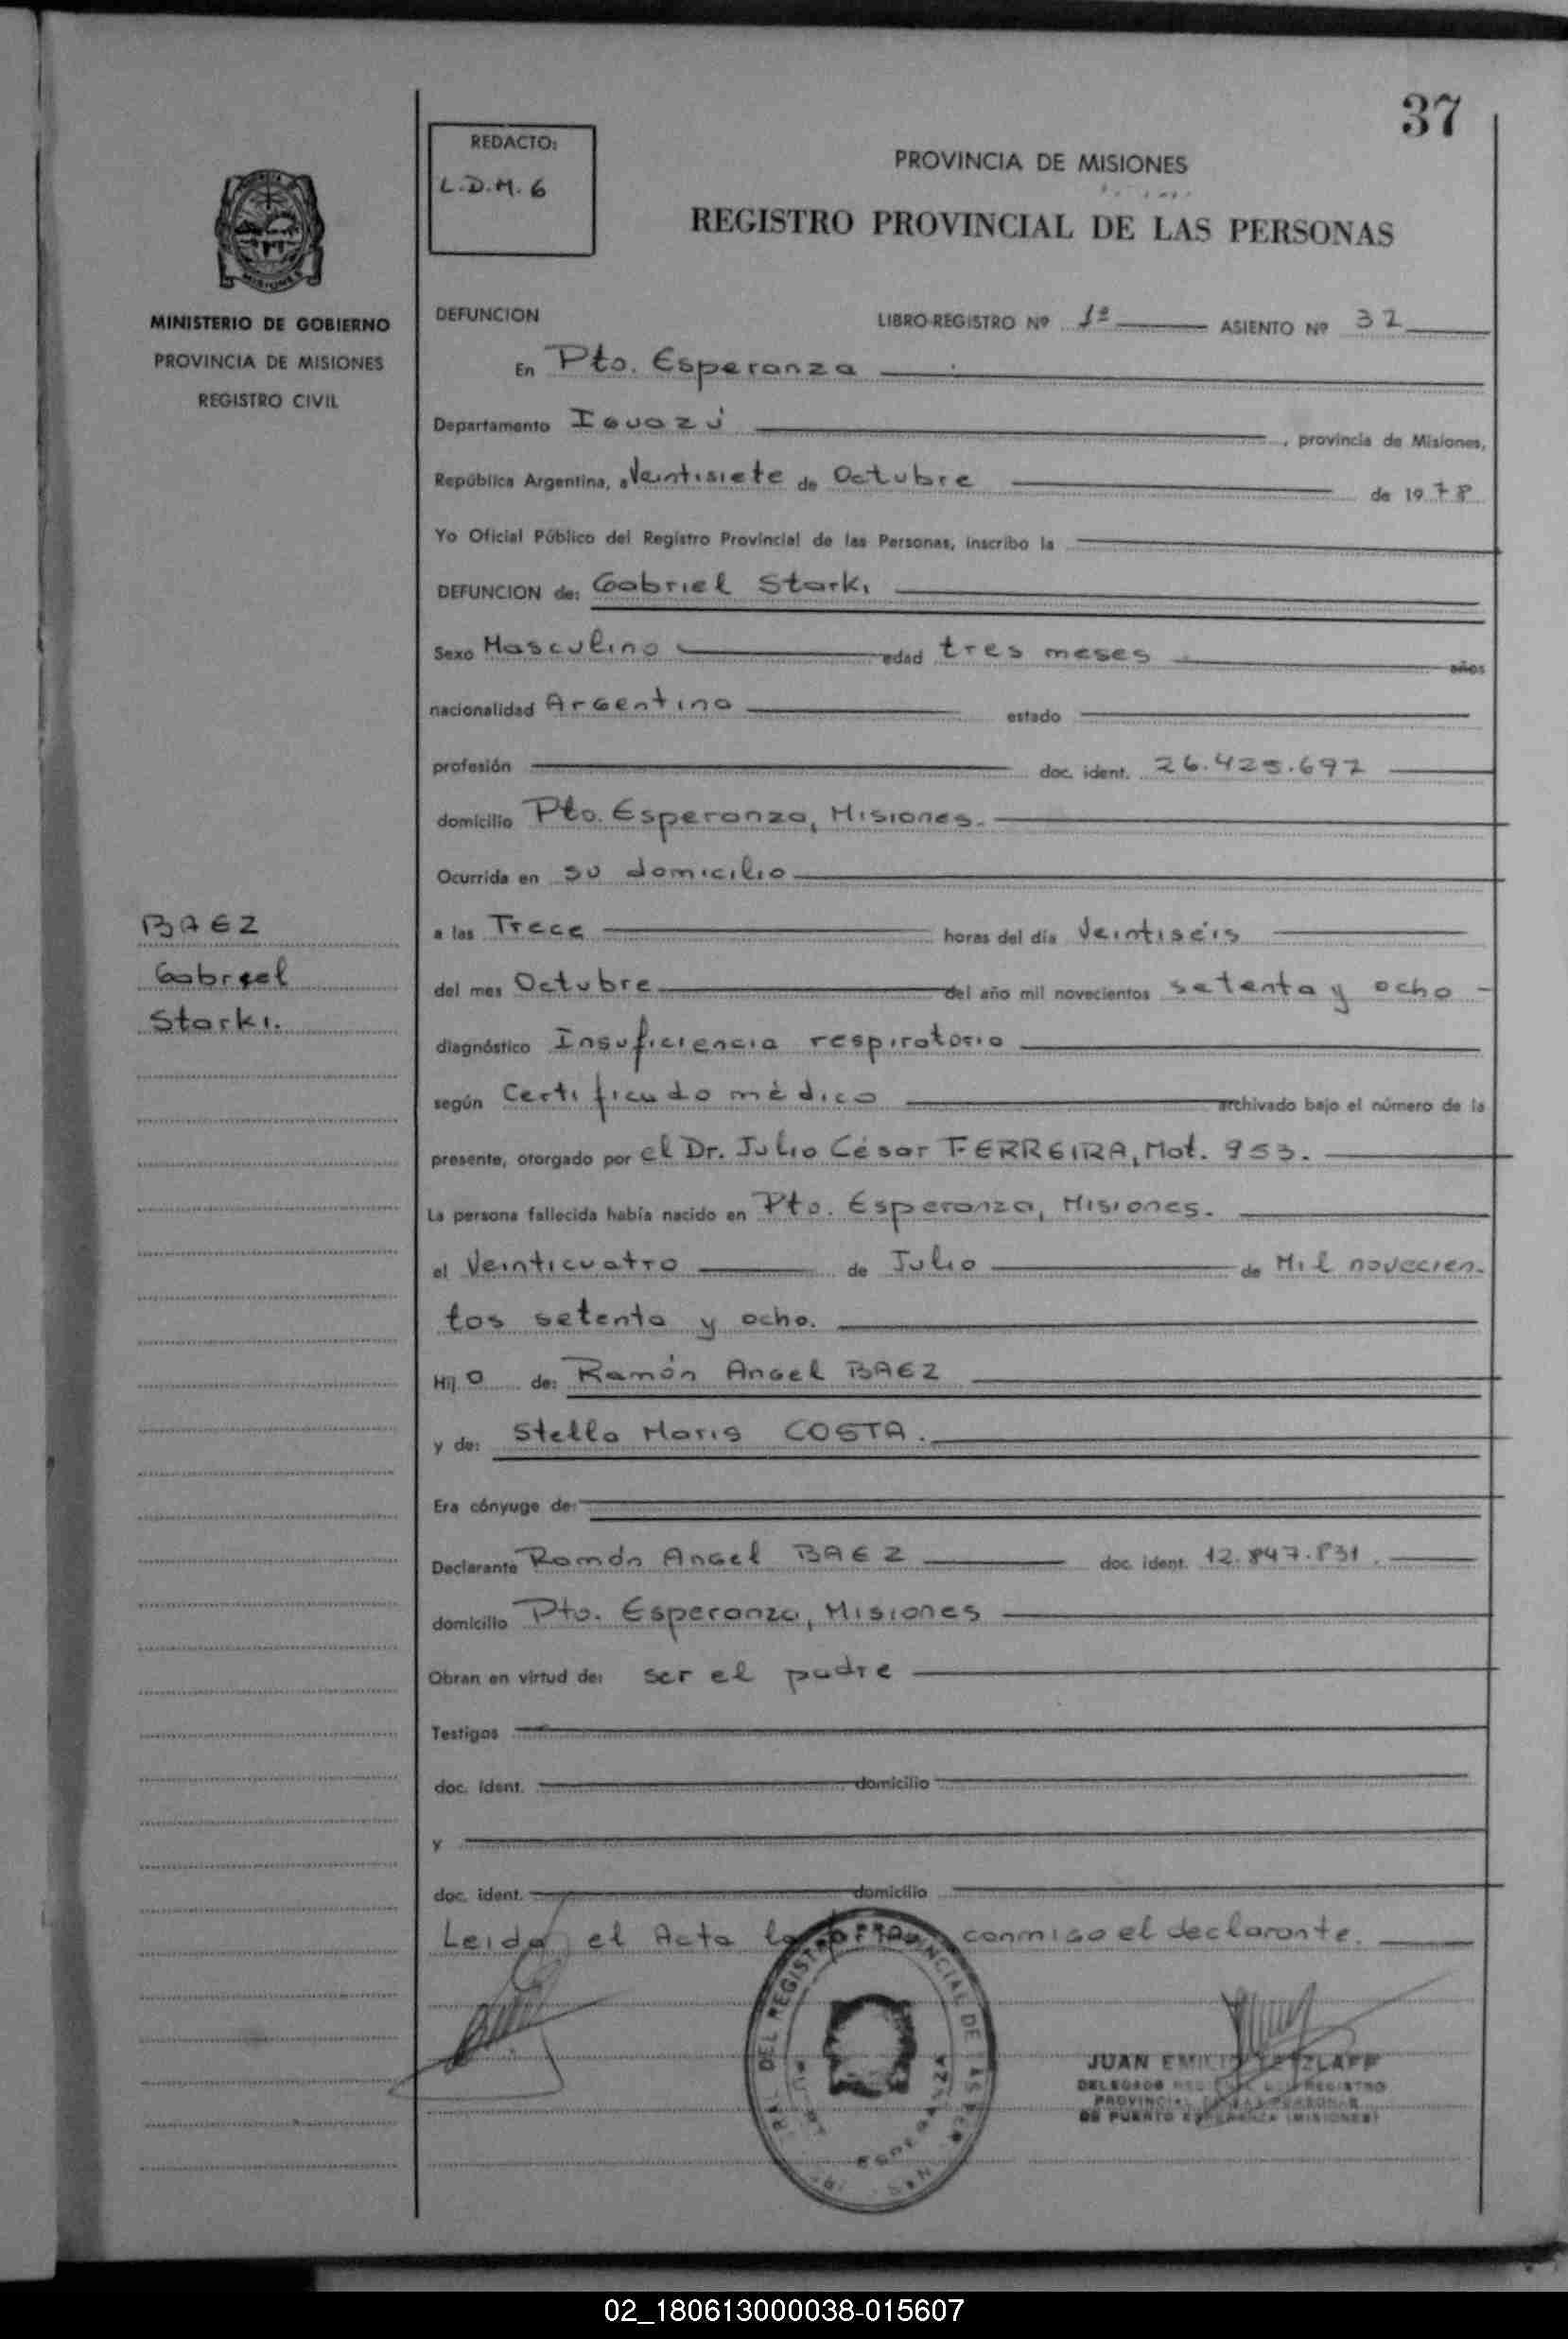 37
REDACTO:
L.D.M. 6
PROVINCIA DE MISIONES
REGISTRO PROVINCIAL DE LAS PERSONAS
MISIONES
MINISTERIO DE GOBIERNO
PROVINCIA DE MISIONES
REGISTRO CIVIL
BAEZ
Gabriel
Starki.
DEFUNCION LIBRO-REGISTRO Nº 1º ASIENTO Nº 32
En Pto. Esperanza
Departamento Iguazú, provincia de Misiones,
República Argentina, a Veintisiete de Octubre de 1978
Yo Oficial Público del Registro Provincial de las Personas, inscribo la
DEFUNCION de: Gabriel Starki
Sexo Masculino edad tres meses años
nacionalidad Argentina estado
profesión doc. ident. 26.425.692
domicilio Pto. Esperanza, Misiones.
Ocurrida en su domicilio
a las Trece horas del día Veintiséis
del mes Octubre del año mil novecientos setenta y ocho
diagnóstico Insuficiencia respiratoria
según Certificado médico archivado bajo el número de la
presente, otorgado por el Dr. Julio César FERREIRA, Mat. 953.
La persona fallecida había nacido en Pto. Esperanza, Misiones.
el Veinticuatro de Julio de Mil novecien-
tos setenta y ocho.
Hijo de: Ramón Angel BAEZ
y de: Stella Maris COSTA.
Era cónyuge de:
Declarante Ramón Angel BAEZ doc. ident. 12.847.831.
domicilio Pto. Esperanza, Misiones
Obran en virtud de: ser el padre
Testigos
doc. ident. domicilio
y
doc. ident. domicilio
Leida el Acta la conmigo el declarante.
DEL REGISTRO PROVINCIAL DE LAS
JUAN EMILIO
DELEGADO REGISTRO
PROVINCIAL DE LAS PERSONAS
DE PUERTO ESPERANZA (MISIONES)
02_180613000038-015607